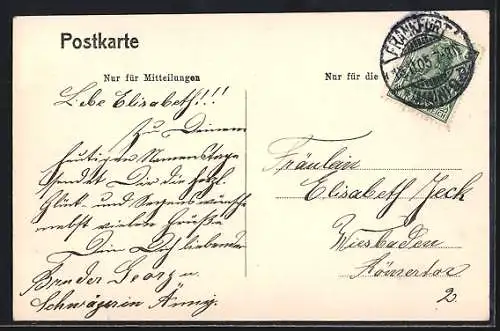 Postkarte
Nur für Mitteilungen
Nur für die
FRANKFURT
Liebe Elisabeth!!!
Zu Deinem
heutigen Namenstage
sendet Dir die herzl.
Glück- und Segenswünsche
nebst vielen Grüße
Dein Dich liebender
Bruder Georg u.
Schwägerin Änny.
Fräulein
Elisabeth Jeck
Wiesbaden
Römertor
2